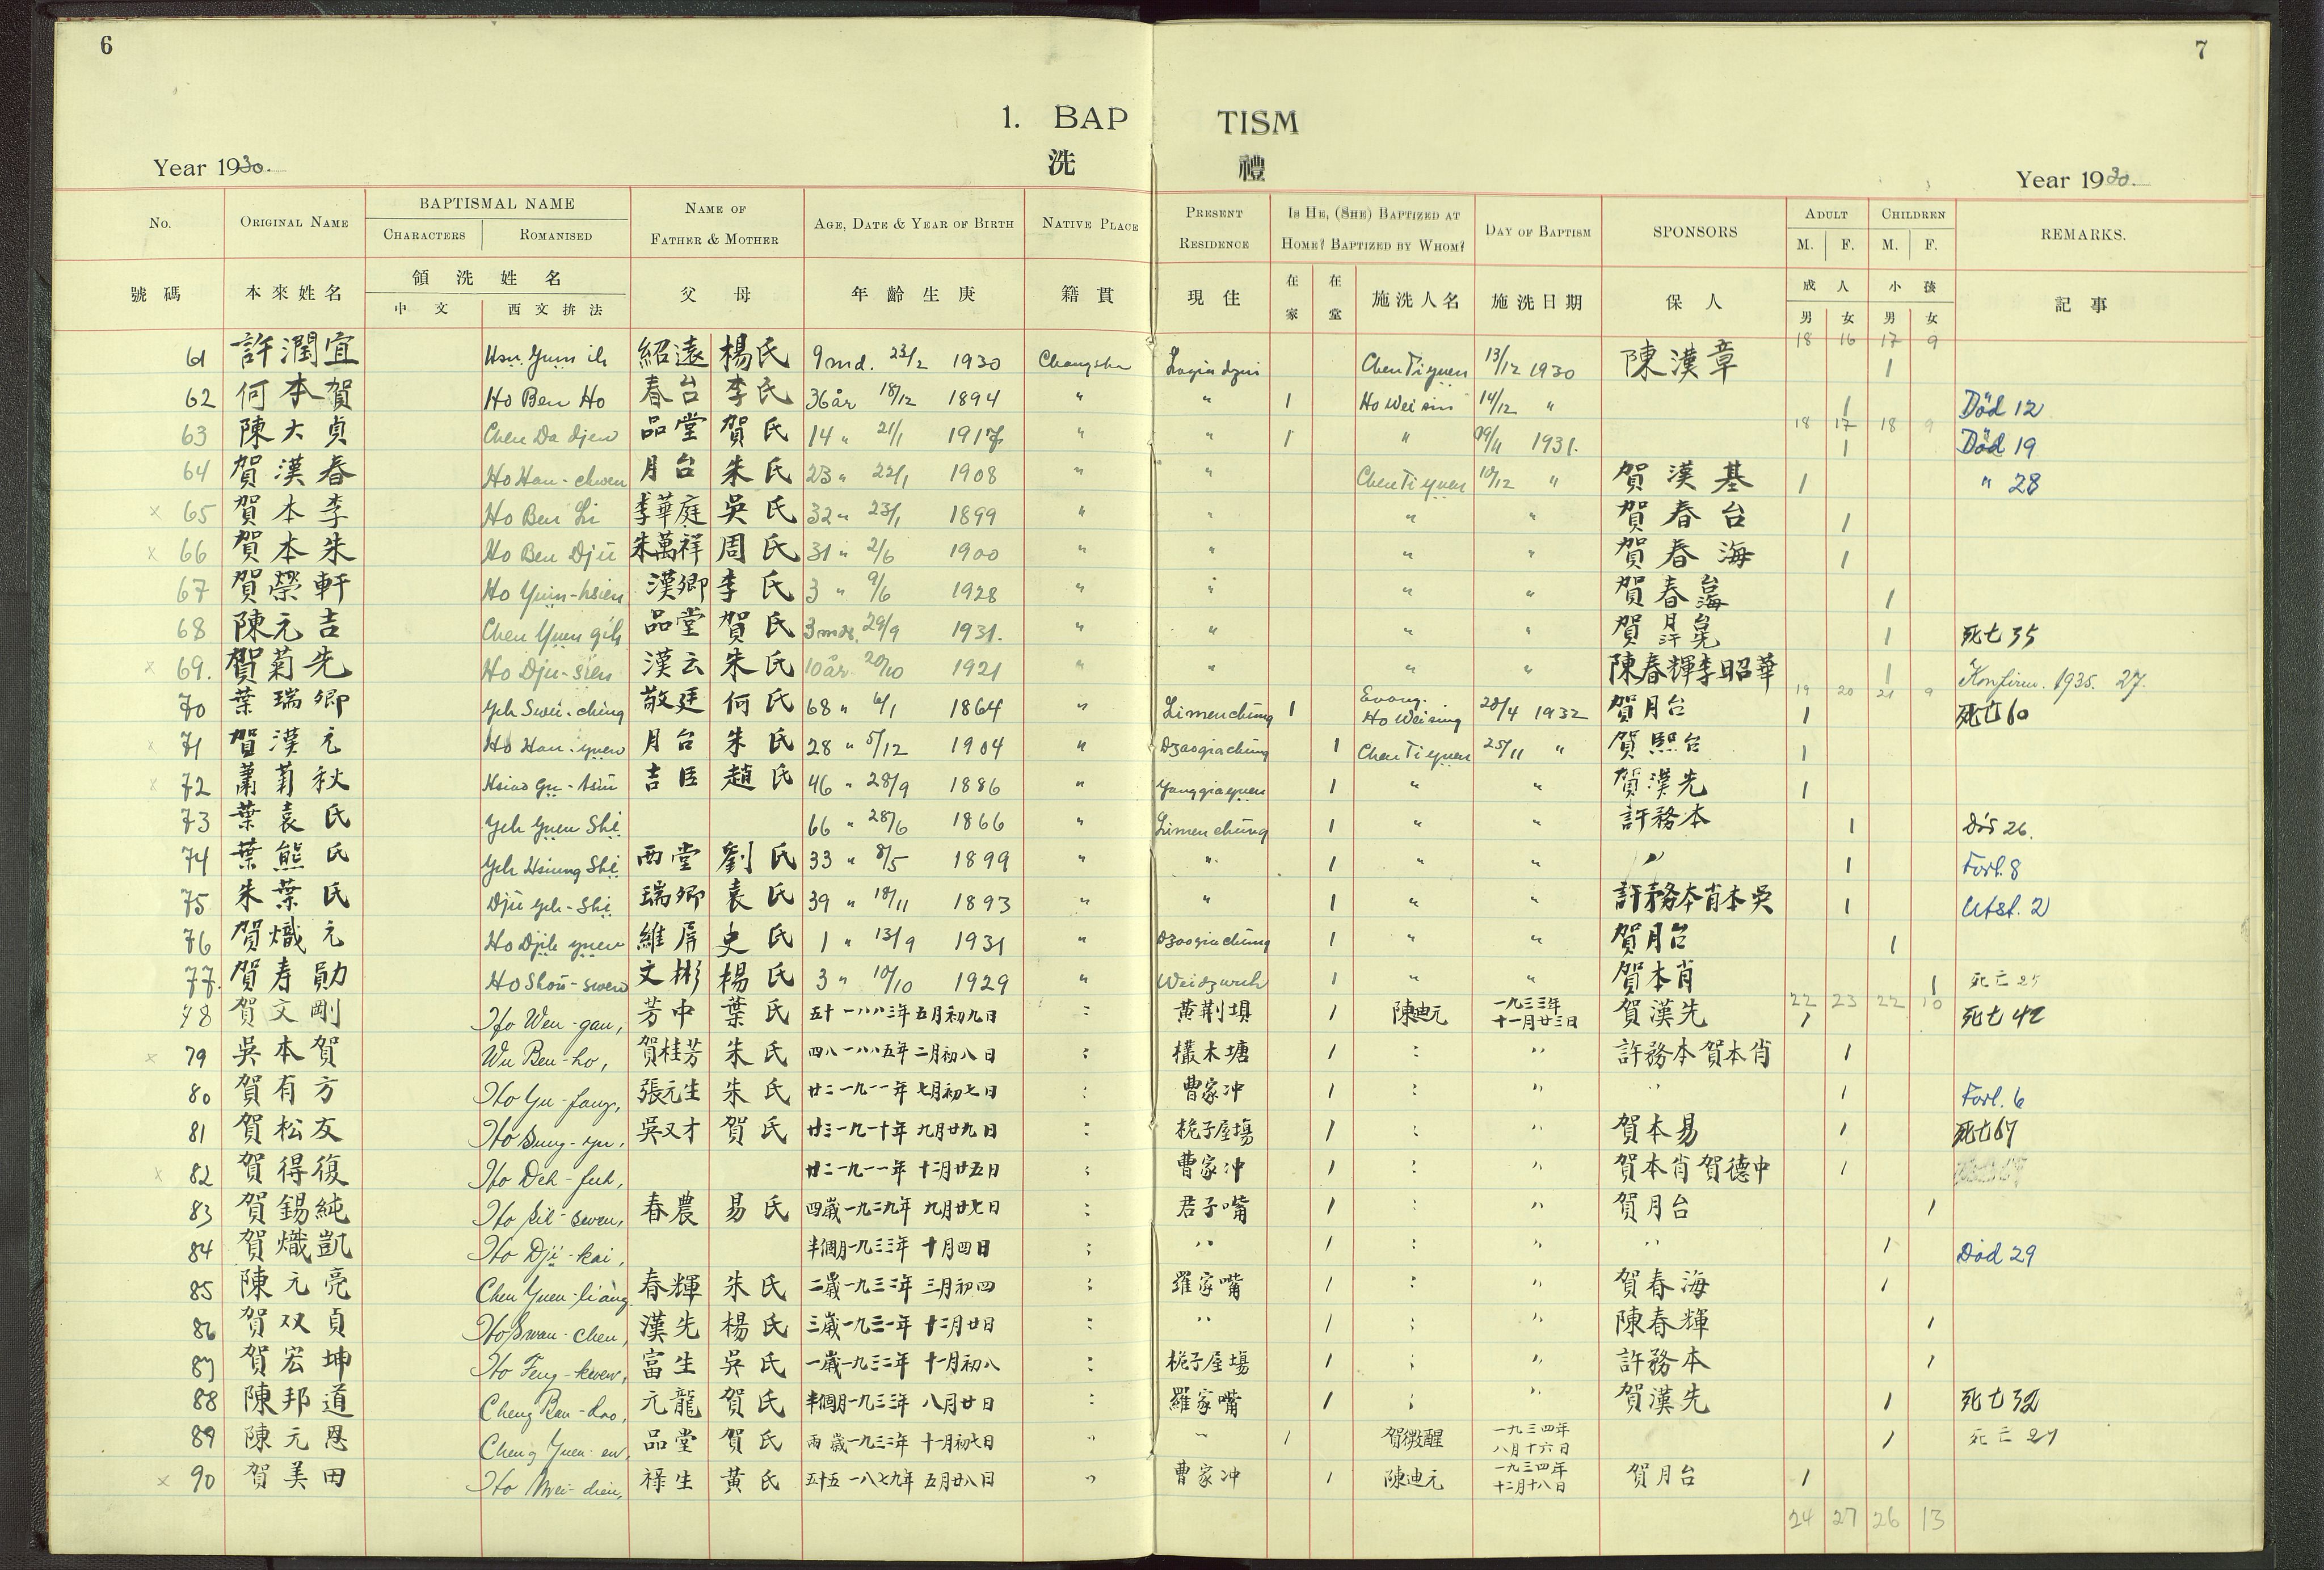 6
7
1. BAP TISM
洗 禮
Year 1930.
Year 1930.
No. ORIGINAL NAME BAPTISMAL NAME CHARACTERS ROMANISED NAME OF FATHER & MOTHER AGE, DATE & YEAR OF BIRTH NATIVE PLACE PRESENT RESIDENCE IS HE, (SHE) BAPTIZED AT HOME? BAPTIZED BY WHOM? DAY OF BAPTISM SPONSORS ADULT M. F. CHILDREN M. F. REMARKS.
號碼 本來姓名 領洗姓名 中文 西文拚法 父母 年齡生庚 籍貫 現住 在家 在堂 施洗人名 施洗日期 保人 成人 男 女 小孩 男 女 記事
18 16 17 9
61 許潤宜 Hsu Yuin ih 紹遠 楊氏 9 md. 23/2 1930 Changsha Chen Ti yuen 13/12 1930 陳漢章 1
62 何本賀 Ho Ben Ho 春台 李氏 36 år 18/12 1894 " " 1 Ho Wei sin 14/12 " 1 Död 12
18 17 18 9
63 陳大貞 Chen Da djen 品堂 賀氏 14 " 21/1 1917 " " 1 " 1931. 1 Död 19
64 賀漢春 Ho Han-chwen 月台 朱氏 23 " 22/1 1908 " " Chen Ti yuen 10/12 " 賀漢基 1 " 28
x 65 賀本李 Ho Ben Li 李華庭 吳氏 32 " 23/1 1899 " " " " 賀春台 1
x 66 賀本朱 Ho Ben Djü 朱萬祥 周氏 31 " 2/6 1900 " " " " 賀春海 1
67 賀榮軒 Ho Yuin-hsien 漢卿 李氏 3 " 9/6 1928 " " " " 賀春台海 1
68 陳元吉 Chen Yuen gih 品堂 賀氏 3 mdr. 29/9 1931. " " " " 賀月台 1 死亡 35
x 69. 賀菊先 Ho Djü-sien 漢云 朱氏 10 år 20/10 1921 " " " " 陳春輝李昭華 1 Konfirm. 1935. 27.
19 20 21 9
70 葉瑞卿 Yeh Swei-ching 敬廷 何氏 68 " 6/1 1864 " Limenchüng 1 Evang. Ho Wei sing 28/4 1932 賀月台 1 死亡 60
x 71 賀漢元 Ho Han-yuen 月台 朱氏 28 " 5/12 1904 " Dzaogiachüng 1 Chen Ti yuen 25/11 " 賀熙台 1
x 72 蕭菊秋 Hsiao Gu-tsiu 吉臣 趙氏 46 " 28/9 1886 " Yanggiayuen 1 " " 賀漢先 1
73 葉袁氏 Yeh Yuen Shi 66 " 28/6 1866 " Limenchüng 1 " " 許務本 1 Dös 26.
74 葉熊氏 Yeh Hsiung Shi 西堂 劉氏 33 " 8/5 1899 " " 1 " " " 1 Forl. 8
75 朱葉氏 Djü Yeh-Shi 瑞卿 袁氏 39 " 18/11 1893 " " 1 " " 許務本肖本吳 1 Utst. 2
76 賀熾元 Ho Djih yuen 維屏 史氏 1 " 13/9 1931 " Dzaogiachüng 1 " " 賀月台 1
77. 賀寿勛 Ho Shou-swen 文彬 楊氏 3 " 10/10 1929 " 1 " " 賀本肖 1 死亡 25
22 23 22 10
78 賀文剛 Ho Wen-gan, 芳中 葉氏 五十 一八八三年五月初九日 : 黄荆垻 1 陳迪元 一九三三年十一月廿三日 賀漢先 1 死亡 42
x 79 吳本賀 Wu Ben-ho, 賀桂芳 朱氏 四八 一八八五年二月初八日 : 欉木塘 1 : " 許務本賀本肖 1
80 賀有方 Ho Yu-fang, 張元生 朱氏 廿二 一九一一年七月初七日 : 曹家冲 1 : " " 1 Forl. 6
81 賀松友 Ho Sung-yu, 吳又才 賀氏 廿三 一九一十年九月廿九日 : 桅子屋塲 1 : " 賀本易 1 死亡 67
x 82 賀得復 Ho Deh-fuh, 廿二 一九一一年十二月廿五日 : 曹家冲 1 : " 賀本肖賀德中 1
83 賀錫純 Ho Sih-swen, 春農 易氏 四歲 一九二九年九月廿七日 : 君子嘴 1 : " 賀月台 1
84 賀熾凱 Ho Dji-kai, 半個月 一九三三年十月四日 : " 1 : " " 1 Död 29
85 陳元亮 Chen Yuen-liang 春輝 朱氏 二歲 一九三二年三月初四 : 羅家嘴 1 : " 賀春海 1
86 賀双貞 Ho Swan-chen, 漢先 楊氏 三歲 一九三一年十二月廿日 : " 1 : " 陳春輝 1
87 賀宏坤 Ho Feng-kwen, 富生 吳氏 一歲 一九三二年十一月初八 : 桅子屋塲 1 : " 許務本 1
88 陳邦道 Cheng Ban-dao, 元龍 賀氏 半個月 一九三三年八月廿日 : 羅家嘴 1 : " 賀漢先 1 死亡 32
89 陳元恩 Cheng Yuen-en, 品堂 賀氏 兩歲 一九三二年十一月初七日 " " 1 賀微醒 一九三四年八月十六日 1 死亡 27
x 90 賀美田 Ho Mei-dien, 祿生 黃氏 五十五 一八七九年五月廿八日 " 曹家冲 1 陳迪元 一九三四年十二月十八日 賀月台 1
24 27 26 13